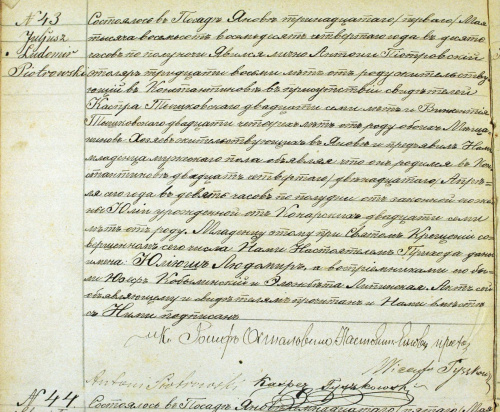 N 43
Juljusz
Ludomir
Piotrowski
Состоялось въ Посадѣ Яновѣ тринадцатаго/перваго/ Мая
тысяча восемьсотъ восемьдесятъ четвертаго года въ десять
часовъ по полуночи Явился лично Антоній Піотровскій
столяръ тридцати восьми лѣтъ отъ роду жительствую
ющій въ Константиновѣ въ присутствіи свидѣтелей
двадцати семи лѣтъ и Викентія
двадцати четырехъ лѣтъ отъ роду обоихъ
жительствующихъ въ Яновѣ и предъявилъ Намъ
младенца мужескаго пола объявляя что онъ родился въ Кон
стантиновѣ двадцать четвертаго/двѣнадцатаго/ Апрѣ-
ля сего года въ девять часовъ по полудни отъ законной его же
ны Юліи урожденной отъ Конарскихъ двадцати семи
лѣтъ отъ роду. Младенцу этому при Святомъ Крещеніи со
вершенномъ сего числа Нами Настоятелемъ дано
имена Юліюшъ Людомиръ, а воспріемниками его бы
ли Іосифъ Кобылинскій и Эльжбета Липинская. Актъ сей
объявляющему и свидѣтелямъ прочитанъ и Нами вмѣстѣ
съ Ними подписанъ
Antoni Piotrowski
N 44
Состоялось въ Посадѣ Яновѣ